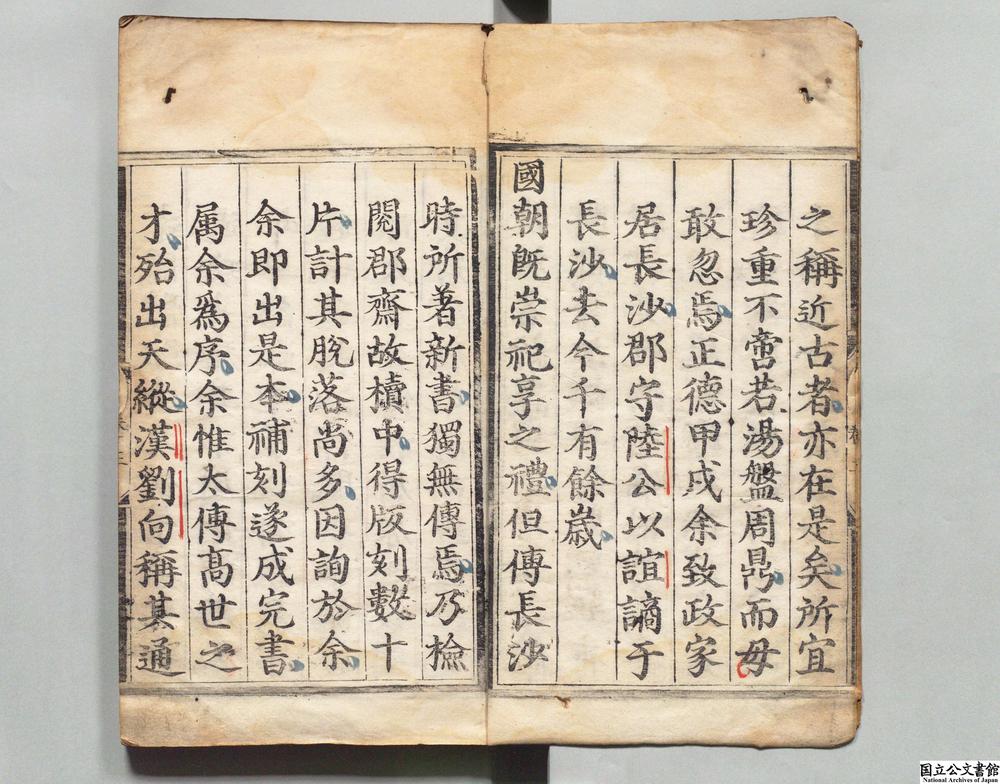 之稱近古者亦在是矣所宜
珍重不啻若湯盤周鼎而毋
敢忽焉正德甲戌余致政家
居長沙郡守陸公以誼謫于
長沙去今千有餘歲
國朝旣崇祀享之禮但傳長沙
時所著新書獨無傳焉乃檢
閱郡齋故櫝中得版刻數十
片計其脫落尚多因詢於余
余即出是本補刻遂成完書
属余爲序余惟太傅高世之
才殆出天縱漢劉向稱其通
国立公文書館
National Archives of Japan